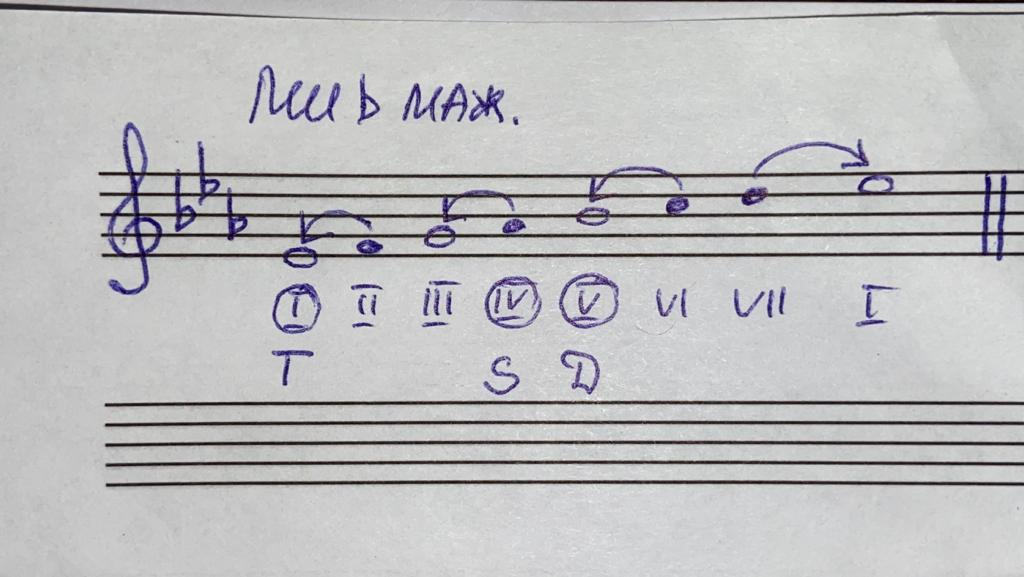 ми ♭ маж.
I II III IV V VI VII I
T S D